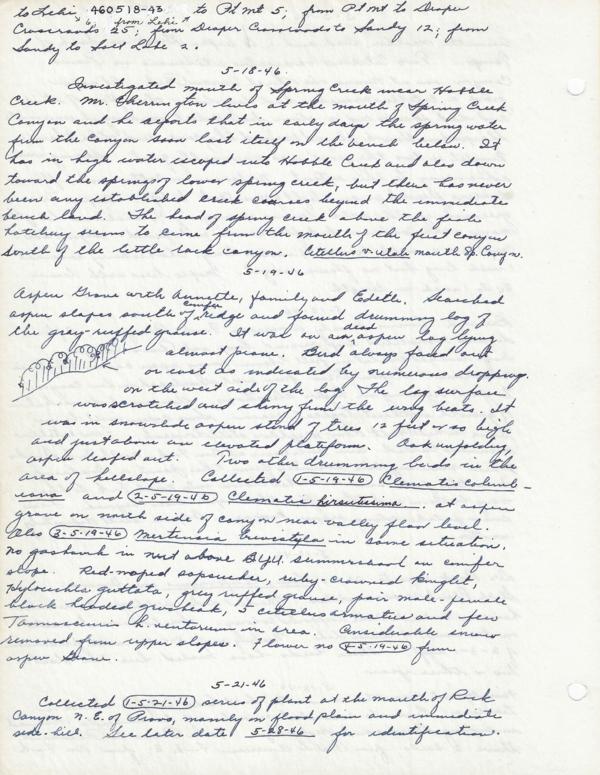 to Lehi 460518-43 to Pt Mt 5; from Pt Mt to Draper
6 from Lehi
Crossroads 25; from Draper Crossroads to Sandy 12; from
Sandy to Salt Lake 2.
5-18-46.
Investigated mouth of Spring Creek near Hobble
Creek. Mr. Cherrington lives at the mouth of Spring Creek
Canyon and he reports that in early days the spring water
from the canyon soon lost itself on the bench below. It
has in high water escaped into Hobble Creek and also down
toward the springs of lower spring creek, but there has never
been any established creek courses beyond the immediate
bench land. The head of spring creek above the fish
hatchery seems to come from the mouth of the first canyon
south of the little rock canyon. Citellus v. utah mouth Sp. Canyon.
5-19-46
Aspen Grove with Annette, family and Edeth. Searched
aspen slopes south of conifer ridge and found drumming log of
the gray-ruffed grouse. It was on an dead aspen log lying
almost prone. Bird always faced out
or east as indicated by numerous droppings
on the west side of the log. The log surface
was scratched and shiny from the wing beats. It
was in snowslide aspen stand of trees 12 feet or so high
and just above an elevated platform. Oak unfolding,
aspen leafed out. Two other drumming birds in the
area of hillslope. Collected 1-5-19-46 Clematis columb-
iana and 2-5-19-46 Clematis hirsutissima. at aspen
grove on north side of canyon near valley floor level.
Also 3-5-19-46 Mertensia brevistyla in same situation.
No goshawk in nest above B.Y.U. summerschool on conifer
slope. Red-naped sapsucker, ruby-crowned kinglet,
Hylocichla guttata, grey ruffed grouse, pair male-female
black headed grosbeak, 5 citellus armatus and few
Tamiasciurus h. ventorum in area. Considerable snow
removed from upper slopes. Flower no 4-5-19-46 from
aspen Grove.
5-21-46
Collected 1-5-21-46 series of plant at the mouth of Rock
Canyon N.E. of Provo, mainly on flood plain and immediate
side-hill. See later date 5-28-46 for identification.